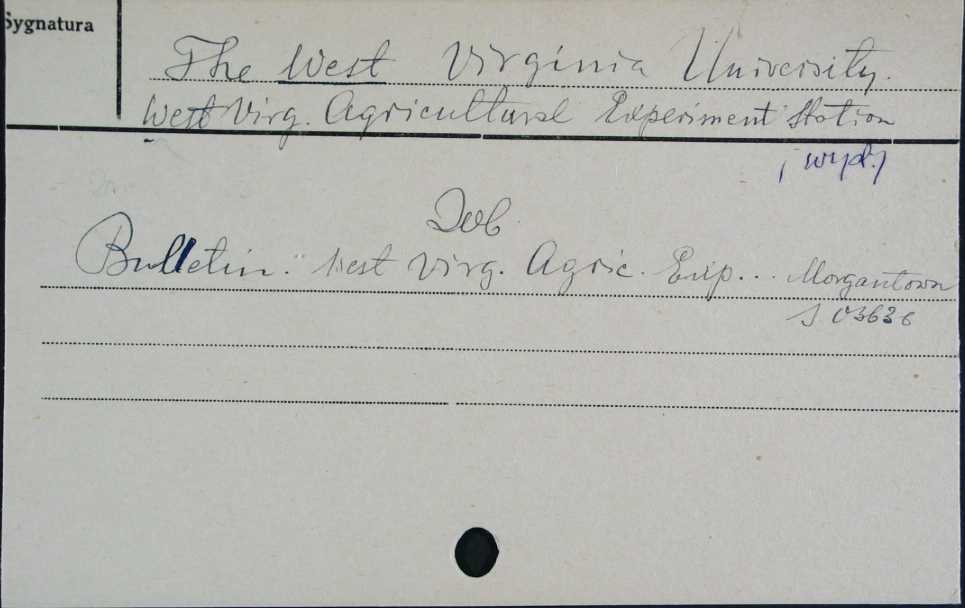 Sygnatura
The West Virginia University.
West Virg. Agricultural Experiment Station
, wyd.)
Bulletin. West Virg. Agric. Exp... Morgantown
03636